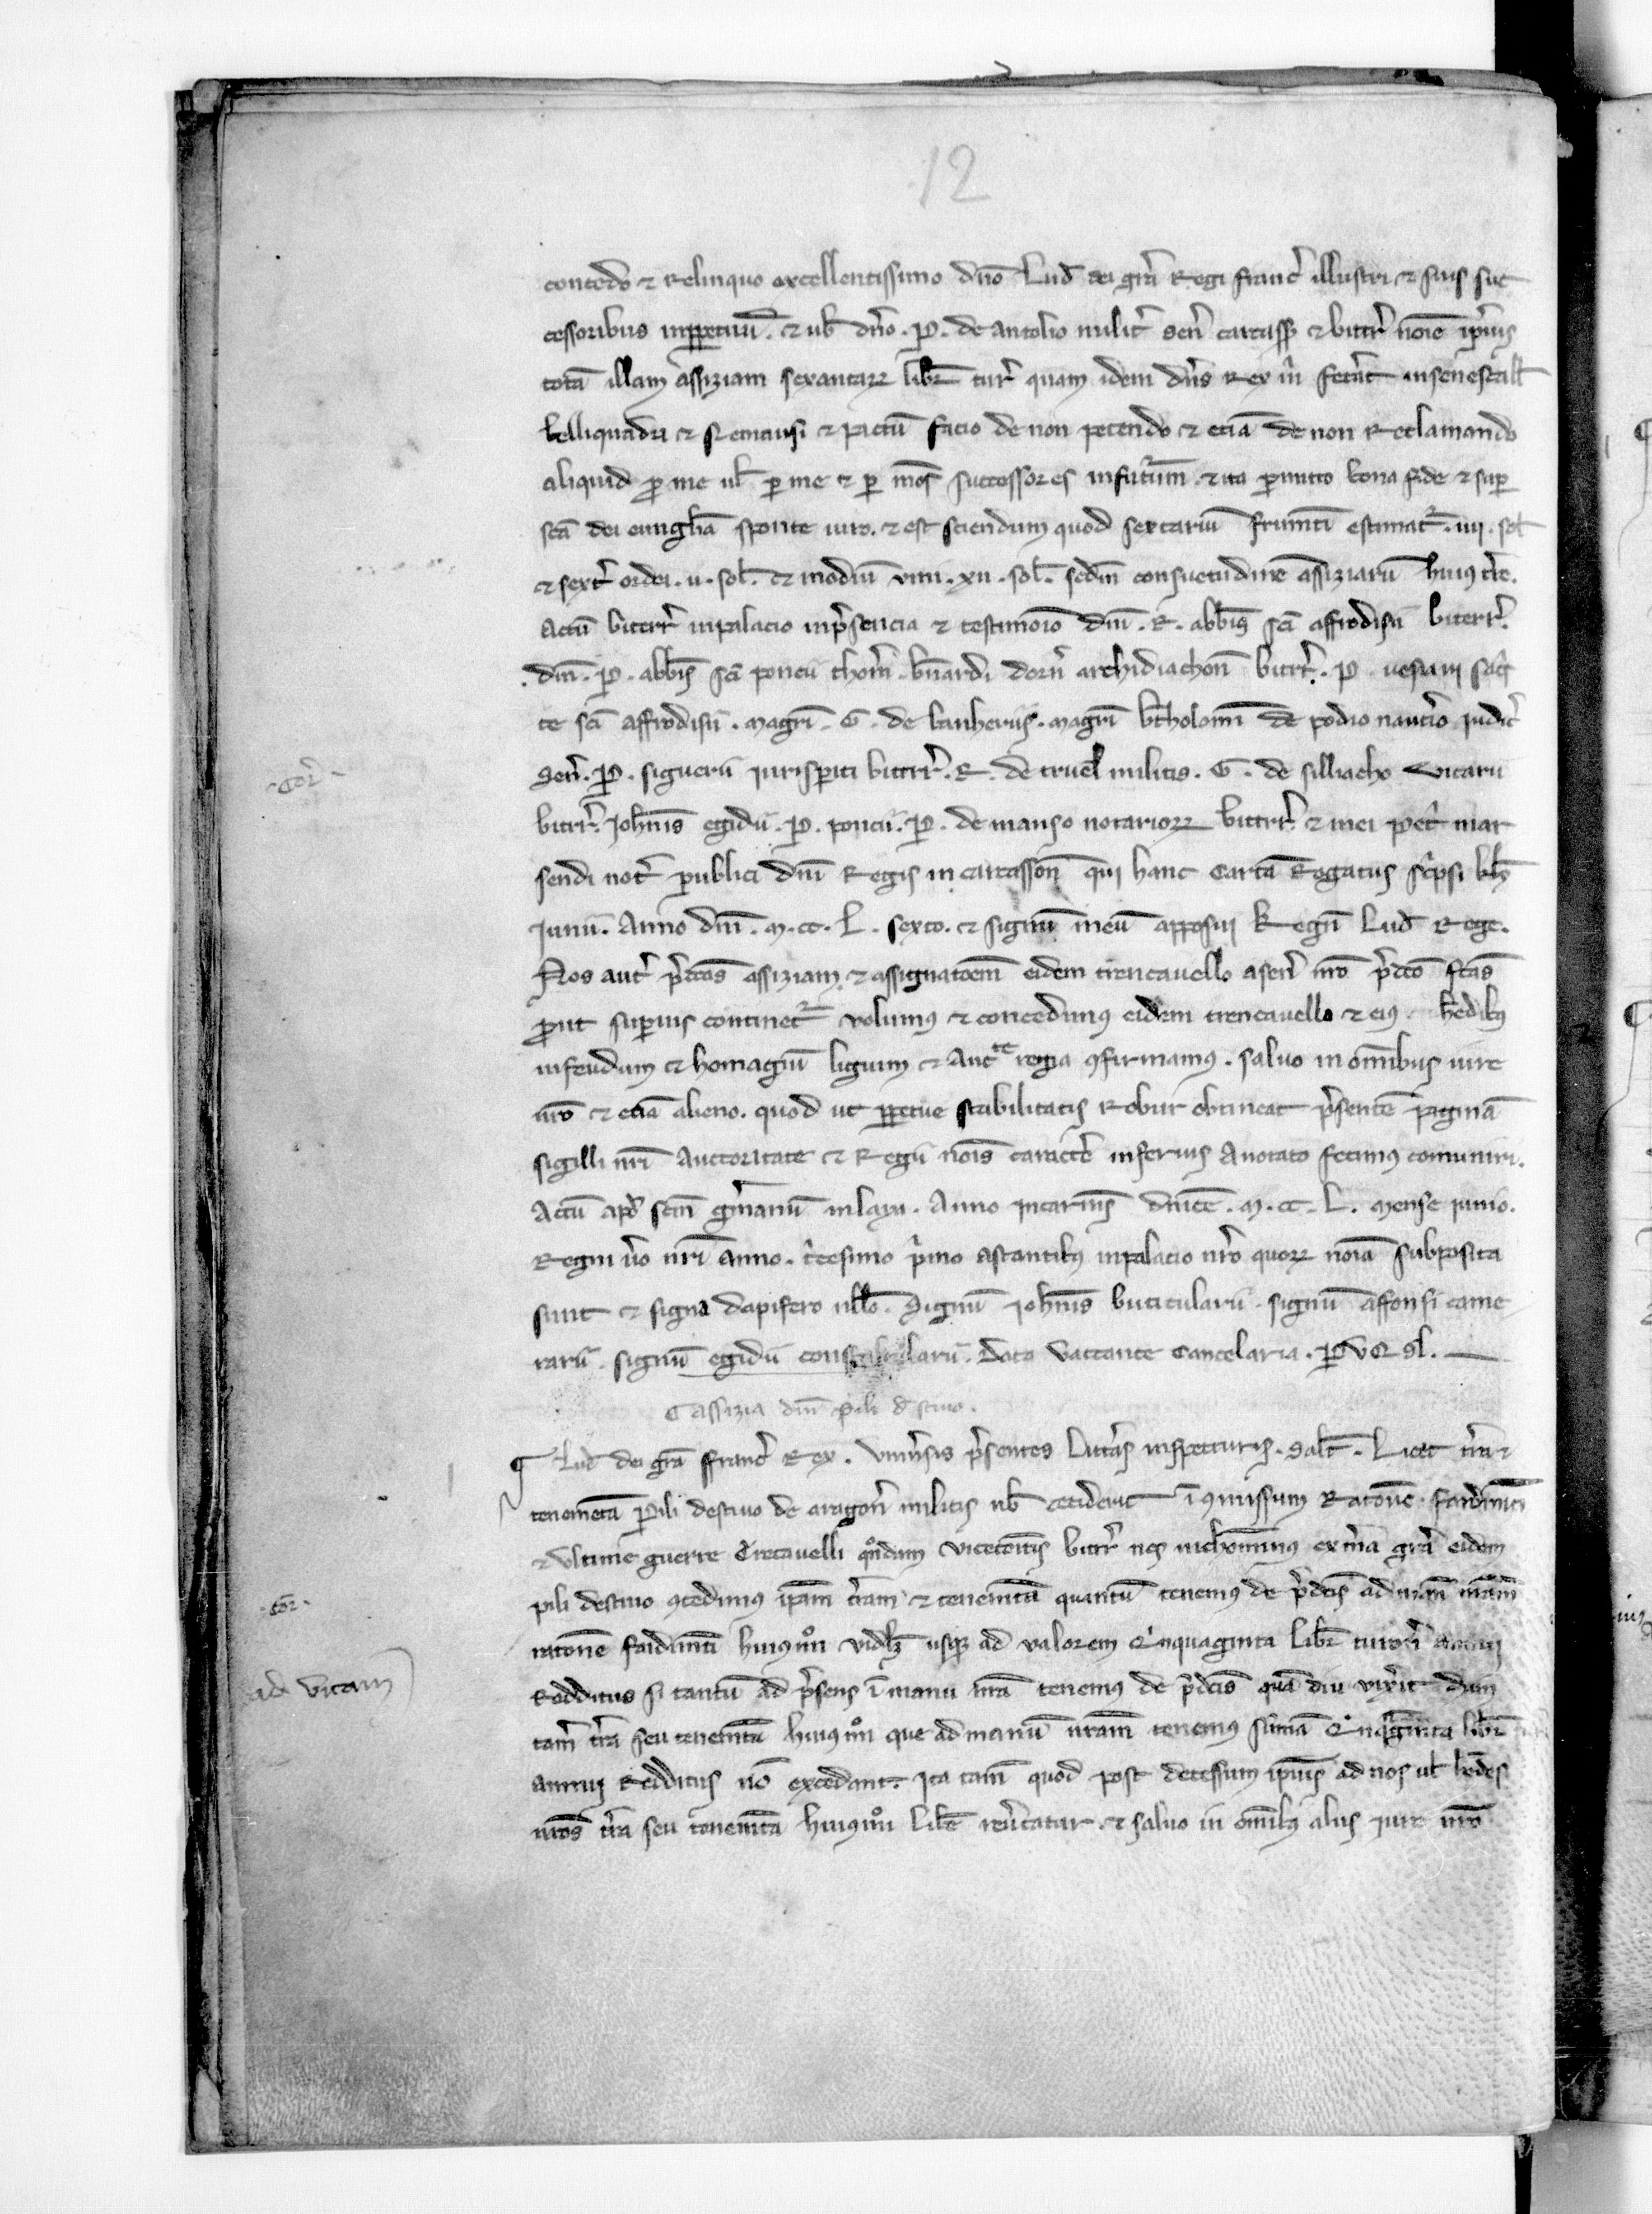 12
concedo ⁊ Relinquo excellentissimo dn̄o Lud̄ dei gr̄a Regi franc̄ illustri ⁊ suis suc
cessoribus inp̱petuū. ⁊ ub̄ dn̄o. P. de antolio milit̄ sen̄ carcass̄ ⁊ bitt̄r noīe ip̄ius
totā illam assiziam sexantaꝝ libr̄ tur̄ quam idem dn̄s Rex m̄ fec̄it in senescall̄
belliquadri ⁊ Nemausi ⁊ pactū facio de non petendo ⁊ eciā de non Reclamando
aliquid ꝓ me ul̄ ꝑ me ⁊ ꝑ meos successores infutur̄um. ⁊ ita ꝓmitto bona fide ⁊ suꝑ
scā dei euuāgl̄ia sponte iuro. ⁊ est sciendum quod sextariū frum̄ti estimat̄. iiij. sol̄
⁊ sext̄ ordei. ii. sol̄. ⁊ modiū vini. xii. sol̄. sc̄dm consuetudinē assiziarū huiꝰ t̄re.
Actū bitt̄rr̄ inpalacio inp̄sencia ⁊ testimoīo dn̄i. R. abb̄is sc̄i affrodisii bit̄err̄.
dn̄i. P. abb̄is sc̄i poncii thom̄. b̄nardi dorn̄ archidiachon̄ bit̄rr̄. P. uesiani sac̄
te sc̄i affrodisii. magr̄i. G. de banheriis. magr̄i b̄tholomei de podio nauc̄io judic̄
Sen̄. P. siguerii jurisꝑiti bitt̄rr̄. R. de truel militis. G. de silliacho vicarii
bit̄rr̄. joh̄nis egidii. P. poncii. P. de manso notarioꝝ bitt̄rr̄. ⁊ mei pet̄ mar
sendi not̄ publici dn̄i Regis in carcasson̄ qui hanc cartā Rogatus sc̄psi kl̄
junii. Anno dn̄i. m. cc. L. sexto. ⁊ signū meū apposui Regn̄ Lud̄ Rege.
Nos aut̄ p̄dcās assiziam ⁊ assignatōem eidem trencauello a sen̄ nr̄o p̄dcō fc̄as
ꝓut suꝑius continet̄ volumꝰ ⁊ concedimꝰ eidem trencauello ⁊ eiꝰ h̄edibꝰ
infeudum ⁊ homagiū ligium ⁊ Auctᵗᵉ regia ꝯfirmamus. saluo in om̄ibus iure
nr̄o ⁊ eciā alieno. quod ut ꝑpetue stabilitatis Robur obtineat p̄sentē paginā
sigilli nr̄i Auctoritate ⁊ Regii noīs caractē inferius Anotato fecimꝰ comuniri.
Actū apd̄ sc̄m ger̄manū inlaya. Anno incarn̄is dn̄ice. m. cc. L. mense junio.
Regni ūo nr̄i anno. t̄cesimo p̄mo astantibꝰ inpalacio nr̄o quoꝝ noīa subposita
sunt ⁊ signa dapifero nullō. Signū joh̄nis buticularii. signū affonsi came
rarii. signū egidii constabularii. Data vaccante Cancelaria. P VQ SL.
¶ assizia dn̄i pili destiuo.
¶ Lud̄ dei gr̄a ffranc̄ Rex. Vniūsis p̄sentes Litt̄as inspecturis. Sal̄t. Licet t̄ra ⁊
tenem̄eta Pili destiuo de aragon̄ militis nb̄ ceciderit ī ꝯmissum Ratoīne faidim̄ti
⁊ vltime guerre Trēcauelli qͦndam vicecōitis bit̄rr̄ nos nichōminus ex m̄a gr̄a eidem
pili destiuo ꝯcedimus ip̄am t̄ram ⁊ tenem̄ta quantū tenemꝰ de p̄dcīs ad man̄ nr̄am
ratoīne faidim̄ti huiꝰmoͦi vidl̄ʒ usqꝫ ad valorem Qͥnquaginta libr̄ turon̄ annui
Redditus si tantū ad p̄sens ī manu nr̄a tenemus de p̄dcīs quā diu vix̄it dum
tam̄ t̄ra seu tenem̄ta huiꝰmoͦi que ad manū nr̄am tenemus sūmā Qͥnqᵃginta libr̄
annui Redditus nō excedant. Ita tam̄ quod post decessum ip̄ius ad nos ul̄ h̄edes
nr̄os t̄ra seu tenem̄ta huiꝰmoͦi lib̄e reūtatur. ⁊ saluo in om̄ibꝰ aliis jure nr̄o
·cor̄·
·cor̄·
ad vitam